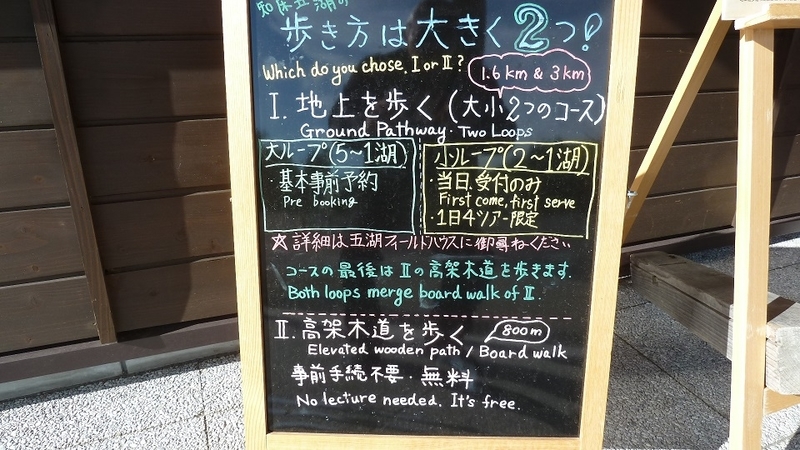 知床五湖の
歩き方は大きく2つ!
Which do you chose. I or II?
1.6km & 3km
I. 地上を歩く(大小2つのコース)
Ground Pathway・Two Loops
大ループ(5~1湖)
・基本事前予約
Pre booking
小ループ(2~1湖)
・当日.受付のみ
First come, first serve
・1日4ツアー限定
☆詳細は五湖フィールドハウスに御尋ねください
コースの最後はIIの高架木道を歩きます.
Both loops merge board walk of II.
II. 高架木道を歩く
800m
Elevated wooden path / Board walk
事前手続不要・無料
No lecture needed. It's free.